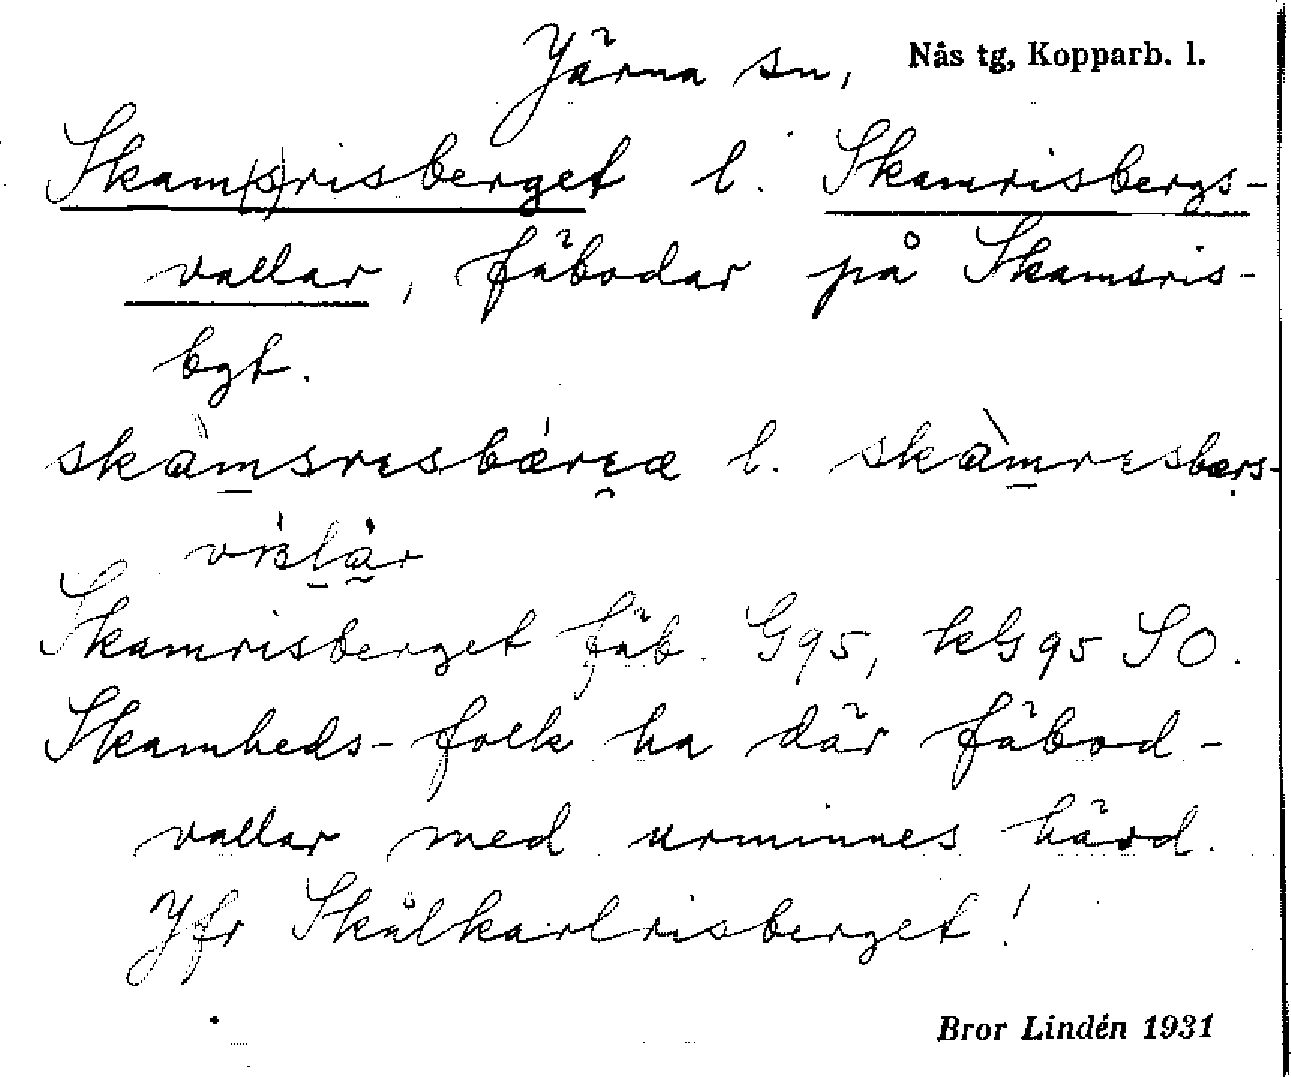 Järna sn, Nås tg, Kopparb. l.
Skam(s)risberget l. Skamrisbergs-
vallar, fäbodar på Skamsris-
bgt.
l.
Skamrisberget fäb. G95, kG95 SO.
Skamheds-folk ha där fäbod-
vallar med urminnes hävd.
Jfr Skålkarlrisberget!
Bror Lindén 1931